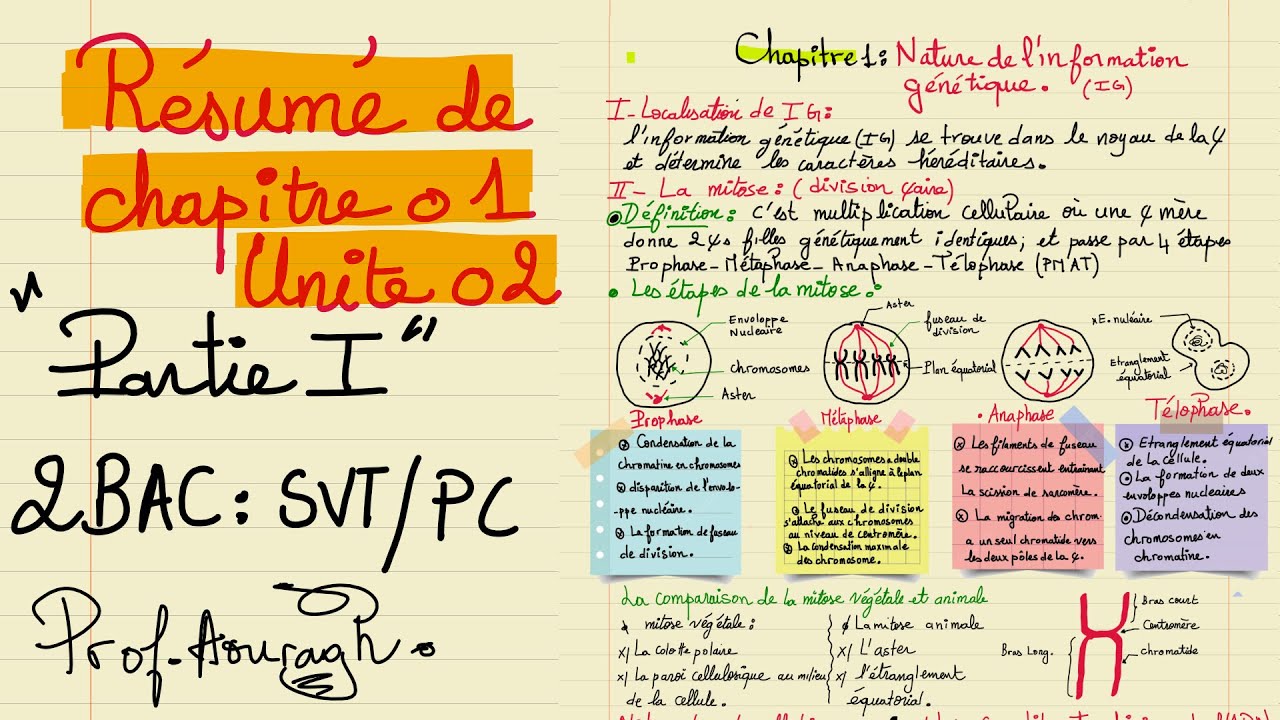 Résumé de
chapitre 01
Unite 02
"Partie I"
2BAC: SVT/PC
Prof. Aouragh.
Chapitre 1: Nature de l'information
génétique. (IG)
I- Localisation de IG:
l'information génétique (IG) se trouve dans le noyau de la φ
et détermine les caractères héréditaires.
II- La mitose: (division φaire)
Définition: C'est multiplication cellulaire où une φ mère
donne 2 φs filles génétiquement identiques; et passe par 4 étapes
Prophase-Métaphase-Anaphase-Télophase (PMAT)
• Les étapes de la mitose:
Enveloppe
Nucléaire
chromosomes
Aster
Aster
fuseau de
division
Plan équatorial
xE. nuléaire
Etranglement
équatorial
Prophase
Métaphase
• Anaphase
Télophase.
Condensation de la
chromatine en chromosomes
disparition de l'envelo-
-ppe nucléaire.
La formation de fuseau
de division.
Les chromosomes a double
chromatides s'alligne à le plan
équatorial de la φ.
Le fuseau de division
s'attache aux chromosomes
au niveau de centromère.
La condensation maximale
des chromosome.
Les filaments de fuseau
se raccourcissent entrainant
la scission de sarcomère.
La migration des chrom-
a un seul chromatide vers
les deux pôles de la φ.
Etranglement équatorial
de la cellule.
La formation de deux
enveloppes nucleaires
Décondensation des
chromosomes en
chromatine.
La comparaison de la mitose végétale et animale
mitose végétale:
x/ La calotte polaire
x/ La paroi cellulosique au milieu
de la cellule.
La mitose animale
x/ L'aster
x/ l'étranglement
équatorial.
Bras court
Centromère
chromatide
Bras Long.